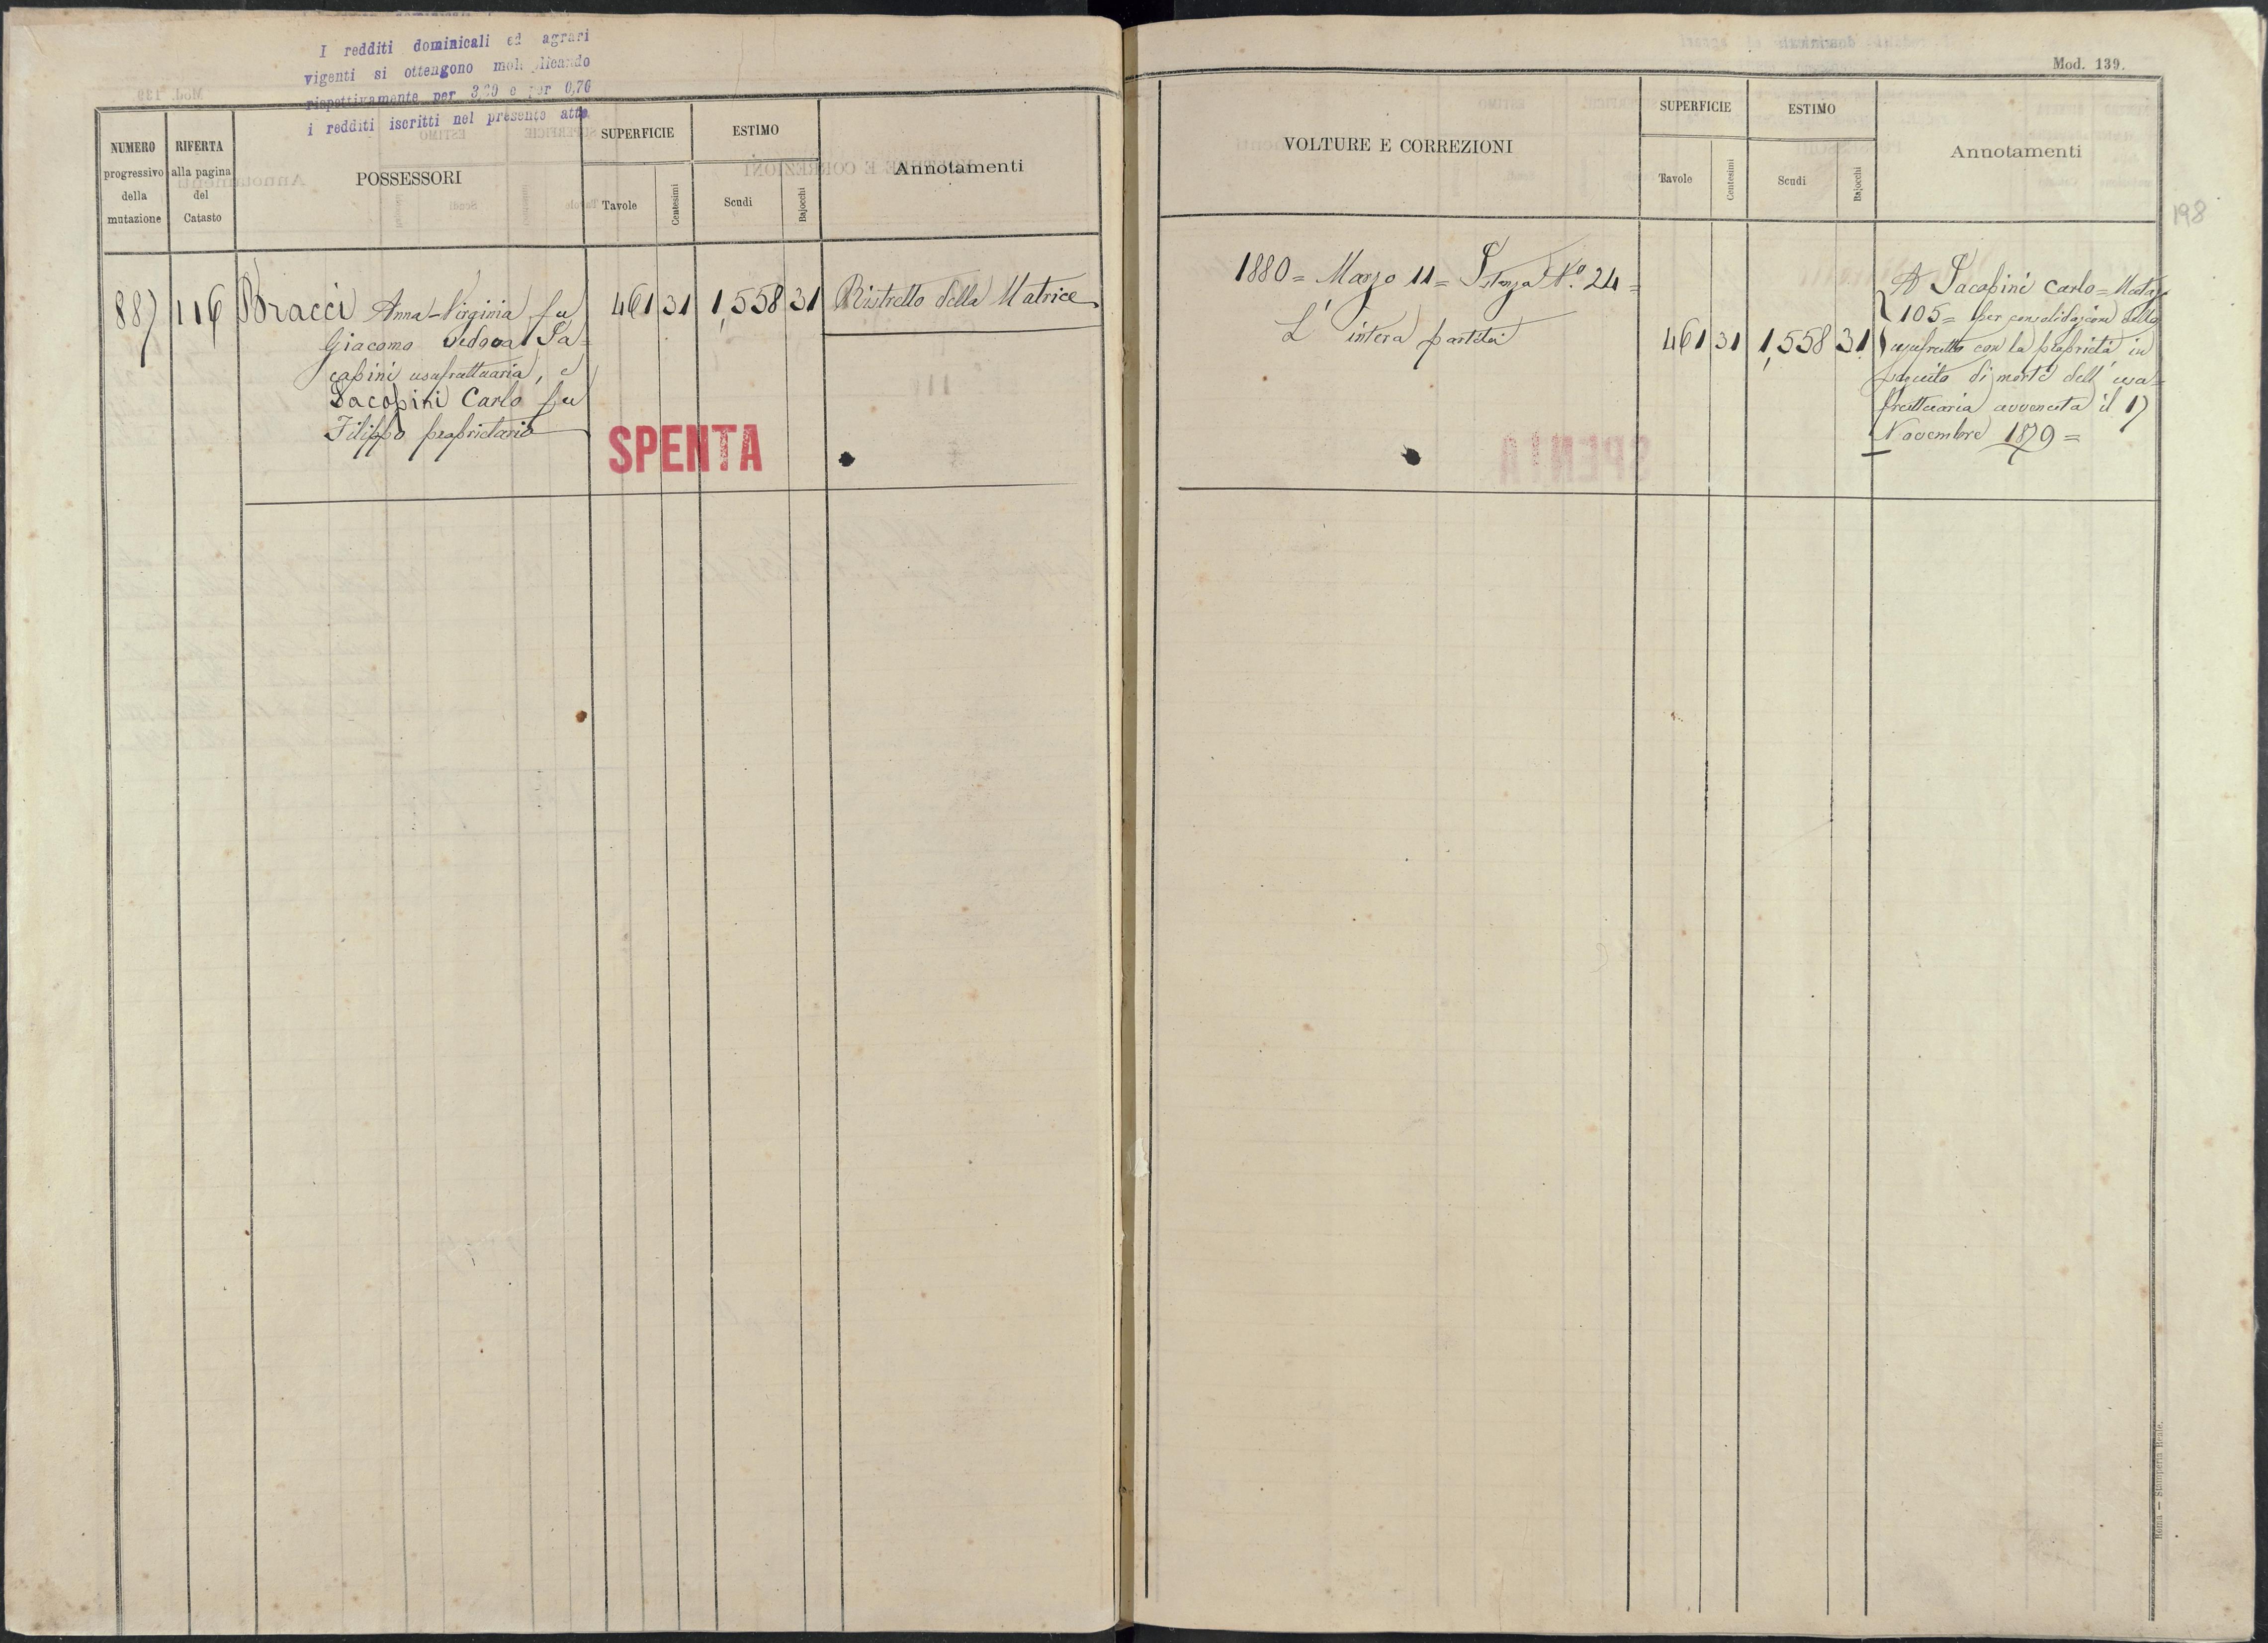 I redditi dominicali ed agrari
vigenti si ottengono moltiplicando
rispettivamente per 3,20 e per 0,76
i redditi iscritti nel presente atto
NUMERO
progressivo
della
mutazione
RIFERTA
alla pagina
del
Catasto
POSSESSORI
SUPERFICIE
Tavole
Centesimi
ESTIMO
Scudi
Bajocchi
Annotamenti
887 116 Bracci Anna-Virginia fu 461 31 1,558 31 Ristretto della Matrice
Giacomo vedova Ja-
capini usufruttuaria, e
Jacobini Carlo fu
Filippo proprietario
SPENTA
Mod. 139.
VOLTURE E CORREZIONI
SUPERFICIE
Tavole
Centesimi
ESTIMO
Scudi
Bajocchi
Annotamenti
198
1880 = Marzo 11 = Istanza N.º 24 =
L' intera partita 461 31 1,558 31
A Jacobini Carlo = Muta
105 = per consolidazione dello
usufrutto con la proprietà in
seguito di morte dell' usu-
fruttuaria avvenuta il 17
Novembre 1879 =
Roma — Stamperia Reale.